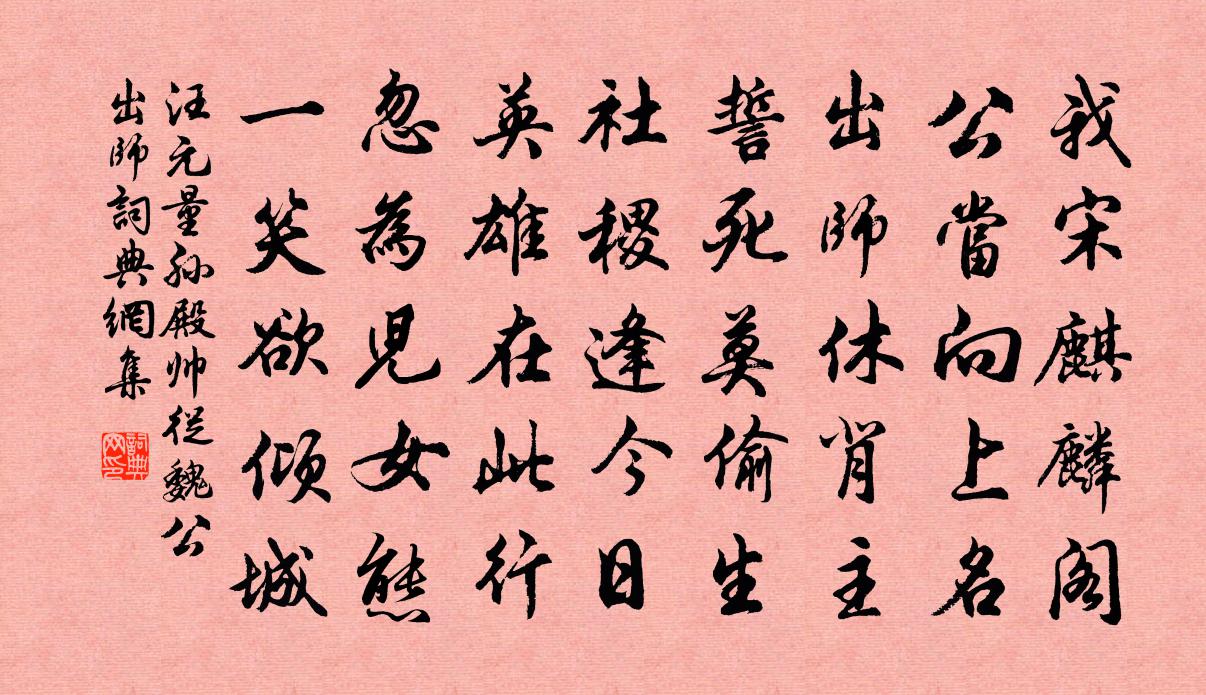 我宋麒麟閣
公當向上名
出師休肖主
誓死莫偷生
社稷逢今日
英雄在此行
忽為兒女態
一笑欲傾城
汪元量孫殿帥從魏公
出師詞典網集
詞典网印